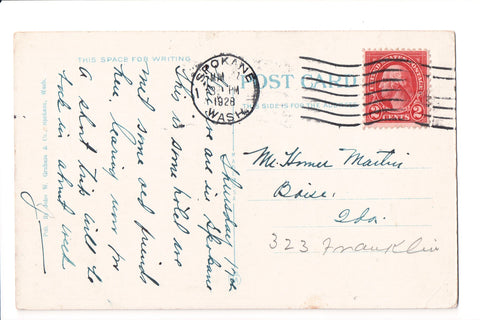 THIS SPACE FOR WRITING
POST CARD
THIS SIDE IS FOR THE ADDRESS
SPOKANE
PM
1928
WASH.
2 CENTS 2
Mr. Homer Martin
Boise,
Ida.
323 Franklin
Thursday
are in Spokane
This is some hotel we
met some old friends
here, leaving now for
a short trip will be
back in about week
Pub. by John W. Graham & Co., Spokane, Wash.